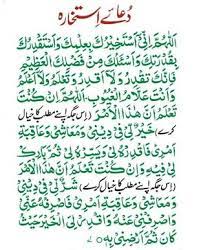 دُعائے اِستخارہ
اَللّٰهُمَّ اِنِّیْ اَسْتَخِیْرُكَ بِعِلْمِكَ وَاَسْتَقْدِرُكَ
بِقُدْرَتِكَ وَاَسْئَلُكَ مِنْ فَضْلِكَ الْعَظِیْمِ
فَاِنَّكَ تَقْدِرُ وَلَآ اَقْدِرُ وَتَعْلَمُ وَلَآ اَعْلَمُ
وَاَنْتَ عَلَّامُ الْغُیُوْبِ اَللّٰهُمَّ اِنْ كُنْتَ
تَعْلَمُ اَنَّ هٰذَا الْاَمْرَ (اس جگہ اپنے مطلب کا خیال
کرے) خَیْرٌ لِّیْ فِیْ دِیْنِیْ وَمَعَاشِیْ وَعَاقِبَةِ
اَمْرِیْ فَاقْدِرْهُ لِیْ وَیَسِّرْهُ لِیْ ثُمَّ بَارِكْ
لِیْ فِیْهِ وَاِنْ كُنْتَ تَعْلَمُ اَنَّ هٰذَا الْاَمْرَ
(اس جگہ اپنے مطلب کا خیال کرے) شَرٌّ لِّیْ فِیْ دِیْنِیْ
وَمَعَاشِیْ وَعَاقِبَةِ اَمْرِیْ فَاصْرِفْهُ عَنِّیْ
وَاصْرِفْنِیْ عَنْهُ وَاقْدِرْ لِیَ الْخَیْرَ حَیْثُ
كَانَ ثُمَّ اَرْضِنِیْ بِهٖ